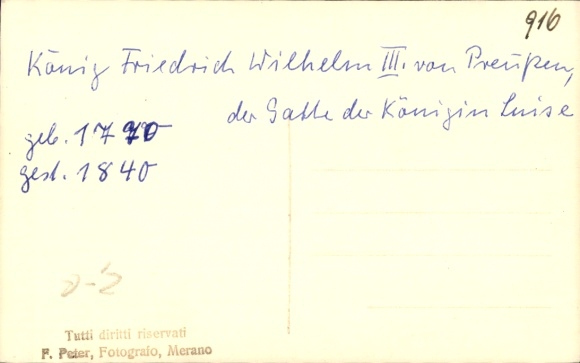 916
König Friedrich Wilhelm III. von Preußen,
der Gatte der Königin Luise
geb. 1770
gest. 1840
Tutti diritti riservati
F. Peter, Fotografo, Merano